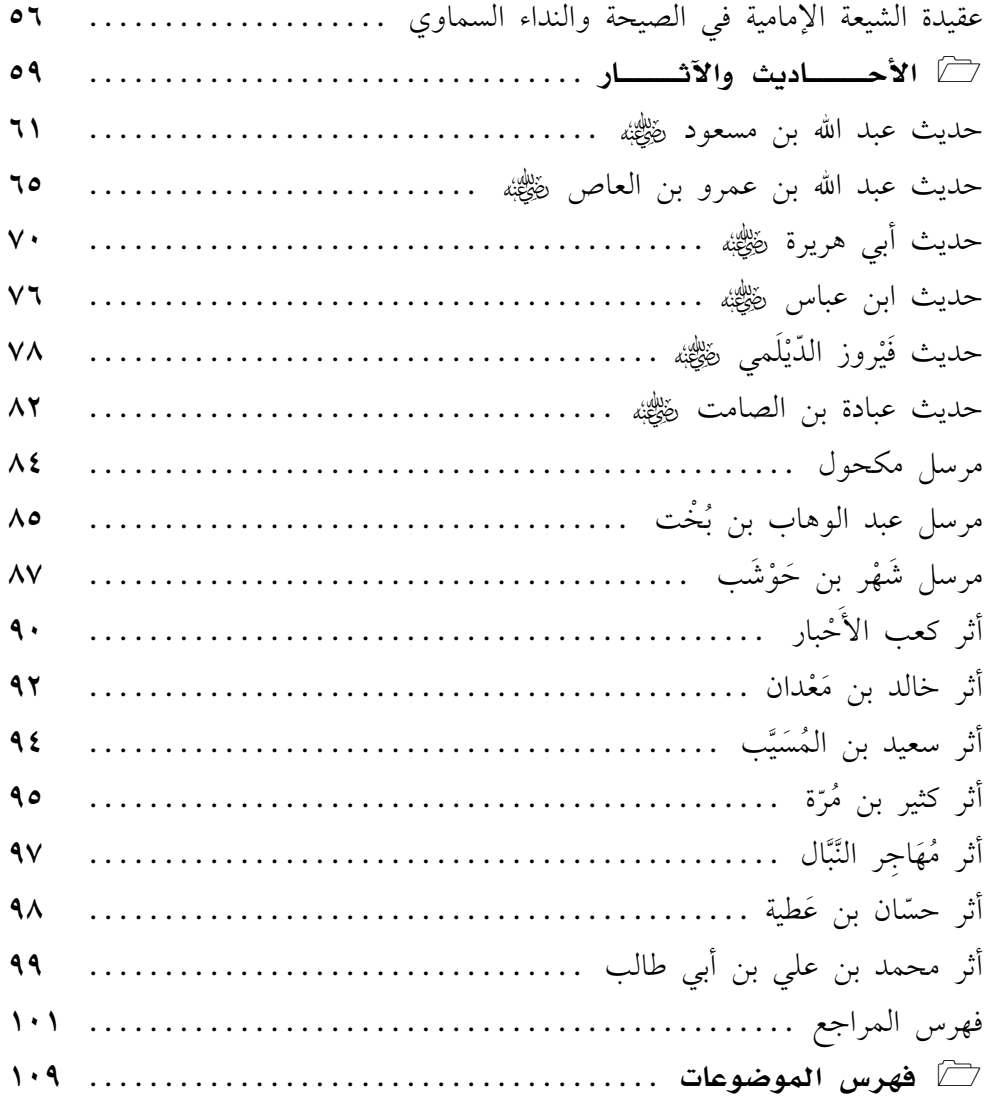 عقيدة الشيعة الإمامية في الصيحة والنداء السماوي .................... ٥٦
الأحــــــاديث والآثــــــار .................................. ٥٩
حديث عبد الله بن مسعود رضي الله عنه .................................. ٦١
حديث عبد الله بن عمرو بن العاص رضي الله عنه .......................... ٦٥
حديث أبي هريرة رضي الله عنه ......................................... ٧٠
حديث ابن عباس رضي الله عنه ......................................... ٧٦
حديث فَيْروز الدّيْلَمي رضي الله عنه ...................................... ٧٨
حديث عبادة بن الصامت رضي الله عنه ................................... ٨٢
مرسل مكحول ............................................... ٨٤
مرسل عبد الوهاب بن بُخْت .................................... ٨٥
مرسل شَهْر بن حَوْشَب ........................................ ٨٧
أثر كعب الأَحْبار ............................................. ٩٠
أثر خالد بن مَعْدان ............................................ ٩٢
أثر سعيد بن المُسَيَّب .......................................... ٩٤
أثر كثير بن مُرّة .............................................. ٩٥
أثر مُهَاجِر النَّبَّال .............................................. ٩٧
أثر حسّان بن عَطية ............................................ ٩٨
أثر محمد بن علي بن أبي طالب ................................. ٩٩
فهرس المراجع ............................................... ١٠١
فهرس الموضوعات ...................................... ١٠٩